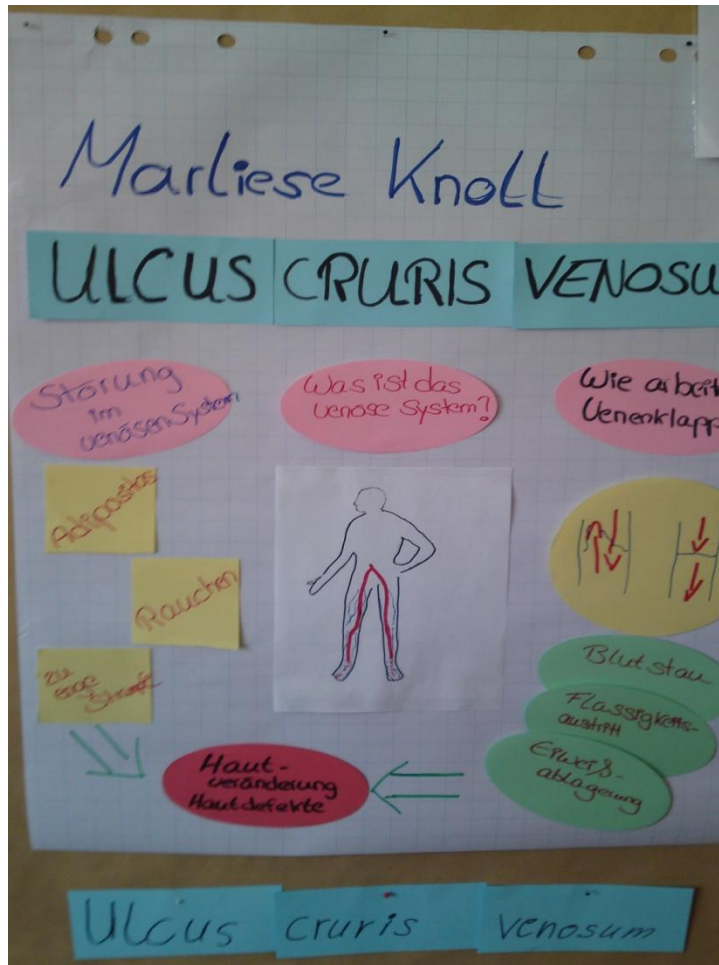 Marliese Knoll
ULCUS CRURIS VENOSU
Störung
im
venösen System
Was ist das
venöse System?
Wie arbeit
Venenklapp
Adipositas
Rauchen
zu
enge
Blutstau
Flüssigkeits-
austritt
Eiweiß-
ablagerung
Haut-
veränderung
Hautdefekte
Ulcus cruris venosum